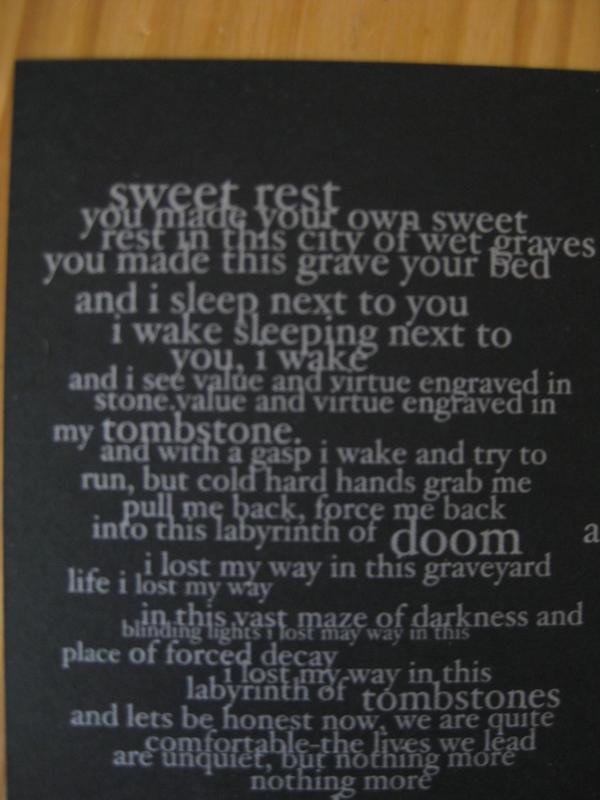 sweet rest
you made your own sweet
rest in this city of wet graves
you made this grave your bed
and i sleep next to you
i wake sleeping next to
you, i wake
and i see value and virtue engraved in
stone.value and virtue engraved in
my tombstone.
and with a gasp i wake and try to
run, but cold hard hands grab me
pull me back, force me back
into this labyrinth of doom a
i lost my way in this graveyard
life i lost my way
in this vast maze of darkness and
blinding lights i lost may way in this
place of forced decay
i lost my way in this
labyrinth of tombstones
and lets be honest now, we are quite
comfortable-the lives we lead
are unquiet, but nothing more
nothing more